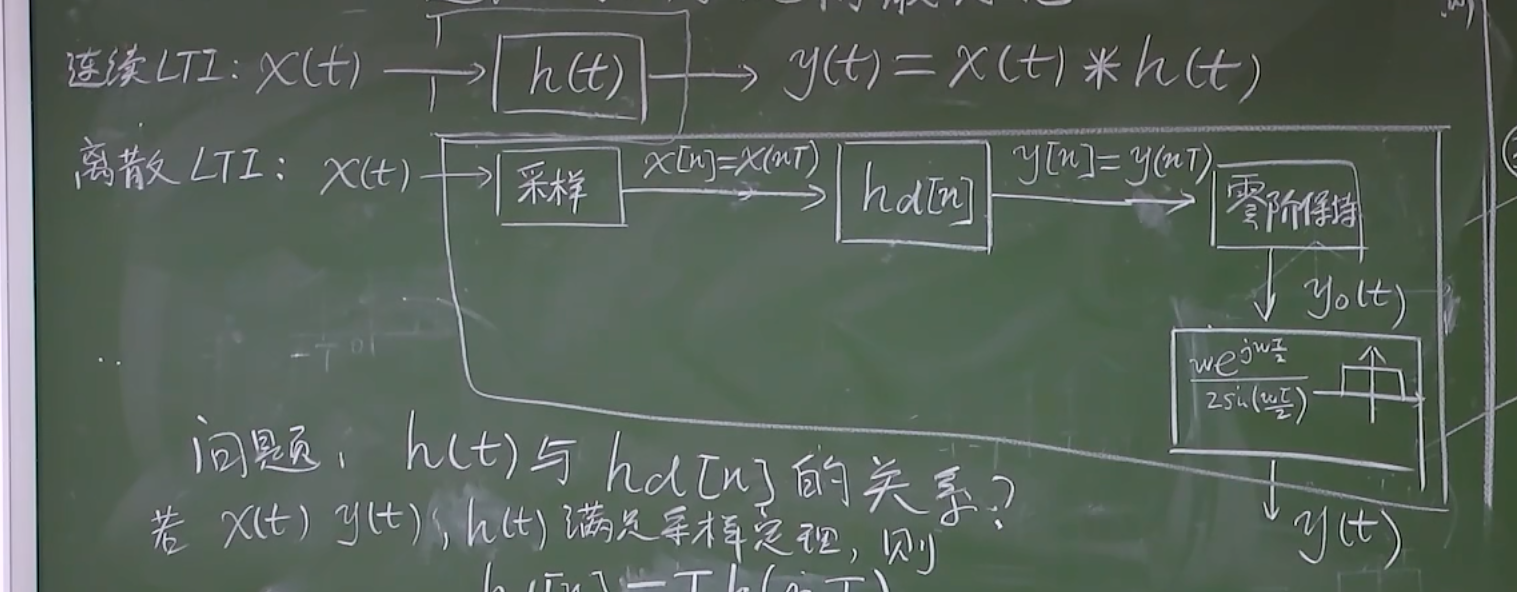 连续LTI: x(t) → h(t) → y(t) = x(t) * h(t)
离散LTI: x(t) → 采样 x[n]=x(nT) → hd[n] y[n]=y(nT) → 零阶保持
y₀(t)
we^{jw T/2} / 2sin(wT/2)
y(t)
问题: h(t)与hd[n]的关系?
若 x(t) y(t), h(t)满足采样定理, 则